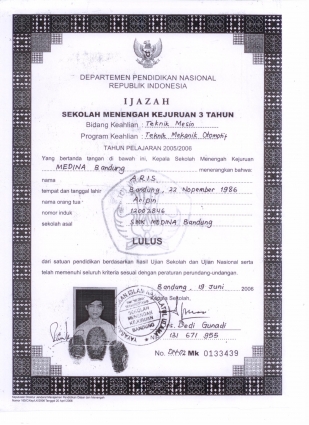 DEPARTEMEN PENDIDIKAN NASIONAL
REPUBLIK INDONESIA
IJAZAH
SEKOLAH MENENGAH KEJURUAN 3 TAHUN
Bidang Keahlian : Teknik Mesin
Program Keahlian : Teknik Mekanik Otomotif
TAHUN PELAJARAN 2005/2006
Yang bertanda tangan di bawah ini, Kepala Sekolah Menengah Kejuruan
MEDINA Bandung menerangkan bahwa:
nama : ARIS
tempat dan tanggal lahir : Bandung, 22 Nopember 1986
nama orang tua : Aripin
nomor induk
sekolah asal : SMK MEDINA Bandung
LULUS
dari satuan pendidikan berdasarkan hasil Ujian Sekolah dan Ujian Nasional serta
telah memenuhi seluruh kriteria sesuai dengan peraturan perundang-undangan.
Bandung, 19 Juni 2006
Kepala Sekolah,
SEKOLAH
MENENGAH
KEJURUAN
BANDUNG
Drs. Dedi Gunadi
131 671 955
No. DN-02 Mk 0133439